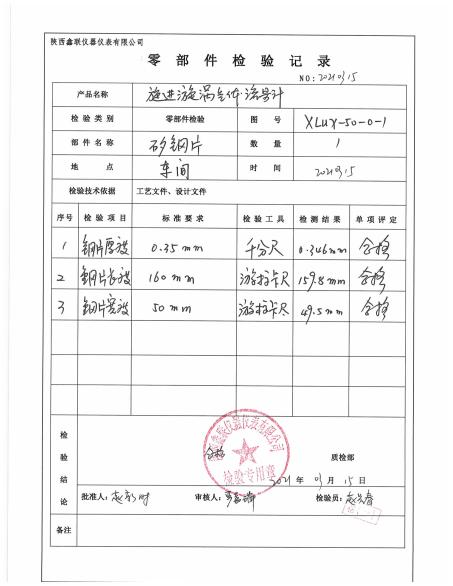 陕西鑫联仪器仪表有限公司
零部件检验记录
NO:20210315
产品名称 旋进旋涡气体流量计
检验类别 零部件检验 图号 XLUX-50-0-1
部件名称 矽钢片 数量 1
地点 车间 时间 20210315
检验技术依据 工艺文件、设计文件
序号 检验项目 标准要求 检验工具 检测结果 单项评定
1 钢片厚度 0.35mm 千分尺 0.346mm 合格
2 钢片长度 160mm 游标卡尺 159.8mm 合格
3 钢片宽度 50mm 游标卡尺 49.5mm 合格
检验结论
陕西鑫联仪器仪表有限公司
检验专用章
合格
质检部
2021年03月15日
批准人: 审核人: 检验员:
备注